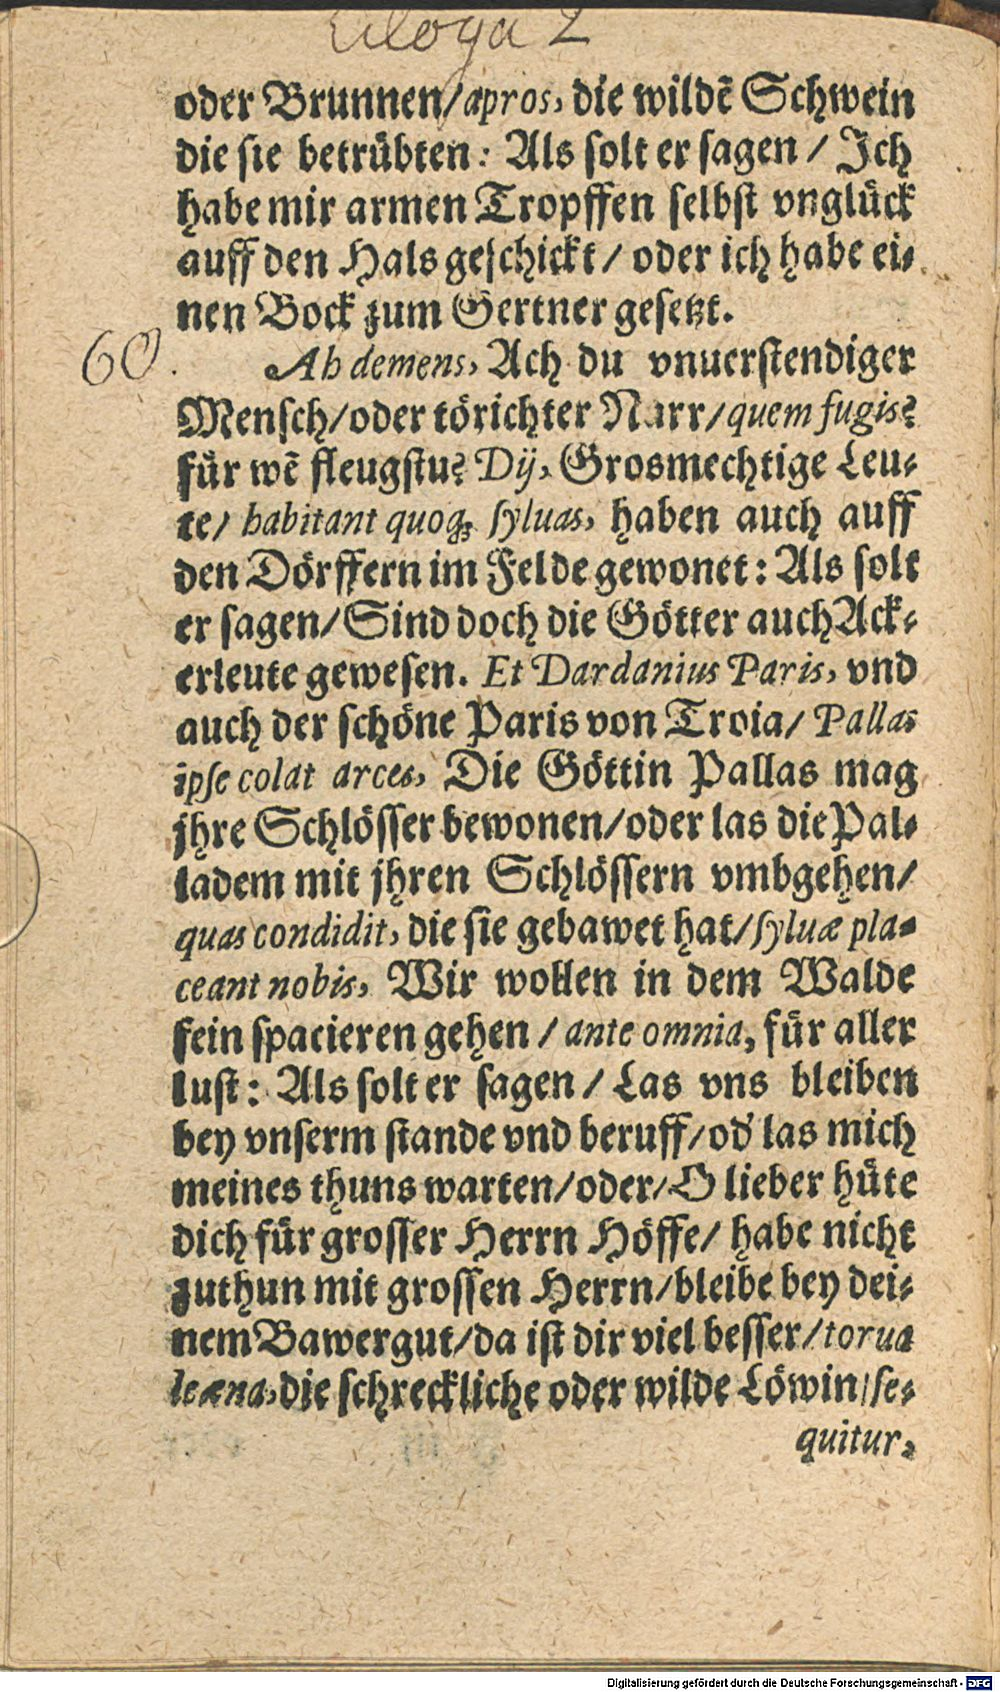 Ecloga 2
oder Brunnen/apros, die wildẽ Schwein
die sie betrübten: Als solt er sagen / Ich
habe mir armen Tropffen selbst vnglück
auff den Hals geschickt/ oder ich habe ei-
nen Bock zum Gertner gesetzt.
60.
Ah demens, Ach du vnuerstendiger
Mensch/oder törichter Narr/quem fugis?
für wẽ fleugstu? Dij, Grosmechtige Leu-
te/ habitant quoq; syluas, haben auch auff
den Dörffern im Felde gewonet: Als solt
er sagen/Sind doch die Götter auch Ack-
erleute gewesen. Et Dardanius Paris, vnd
auch der schöne Paris von Troia/ Pallas
ipse colat arces, Die Göttin Pallas mag
jhre Schlösser bewonen/oder las die Pal-
ladem mit jhren Schlössern vmbgehen/
quas condidit, die sie gebawet hat/syluæ pla-
ceant nobis, Wir wollen in dem Walde
fein spacieren gehen / ante omnia, für aller
lust: Als solt er sagen/ Las vns bleiben
bey vnserm stande vnd beruff/od' las mich
meines thuns warten/oder/O lieber hüte
dich für grosser Herrn Höffe/ habe nicht
zuthun mit grossen Herrn/bleibe bey dei-
nem Bawergut/da ist dir viel besser/torua
leæna, die schreckliche oder wilde Löwin/se-
quitur,
Digitalisierung gefördert durch die Deutsche Forschungsgemeinschaft - DFG